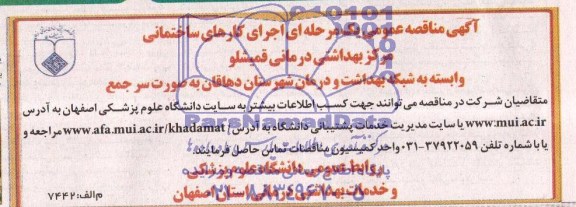 آگهی مناقصه عمومی یک مرحله ای اجرای کارهای ساختمانی
مرکز بهداشتی درمانی قمیشلو
وابسته به شبکه بهداشت و درمان شهرستان دهاقان به صورت سر جمع
متقاضیان شرکت در مناقصه می توانند جهت کسب اطلاعات بیشتر به سایت دانشگاه علوم پزشکی اصفهان به آدرس
www.mui.ac.ir یا سایت مدیریت خدمات پشتیبانی دانشگاه به آدرس www.afa.mui.ac.ir/khadamat مراجعه و
یا با شماره تلفن ۳۷۹۲۲۰۵۹-۰۳۱ واحد کمیسیون مناقصات تماس حاصل فرمایند.
روابط عمومی دانشگاه علوم پزشکی
و خدمات بهداشتی درمانی استان اصفهان
م الف: ۷۴۴۲
ParsNamadData